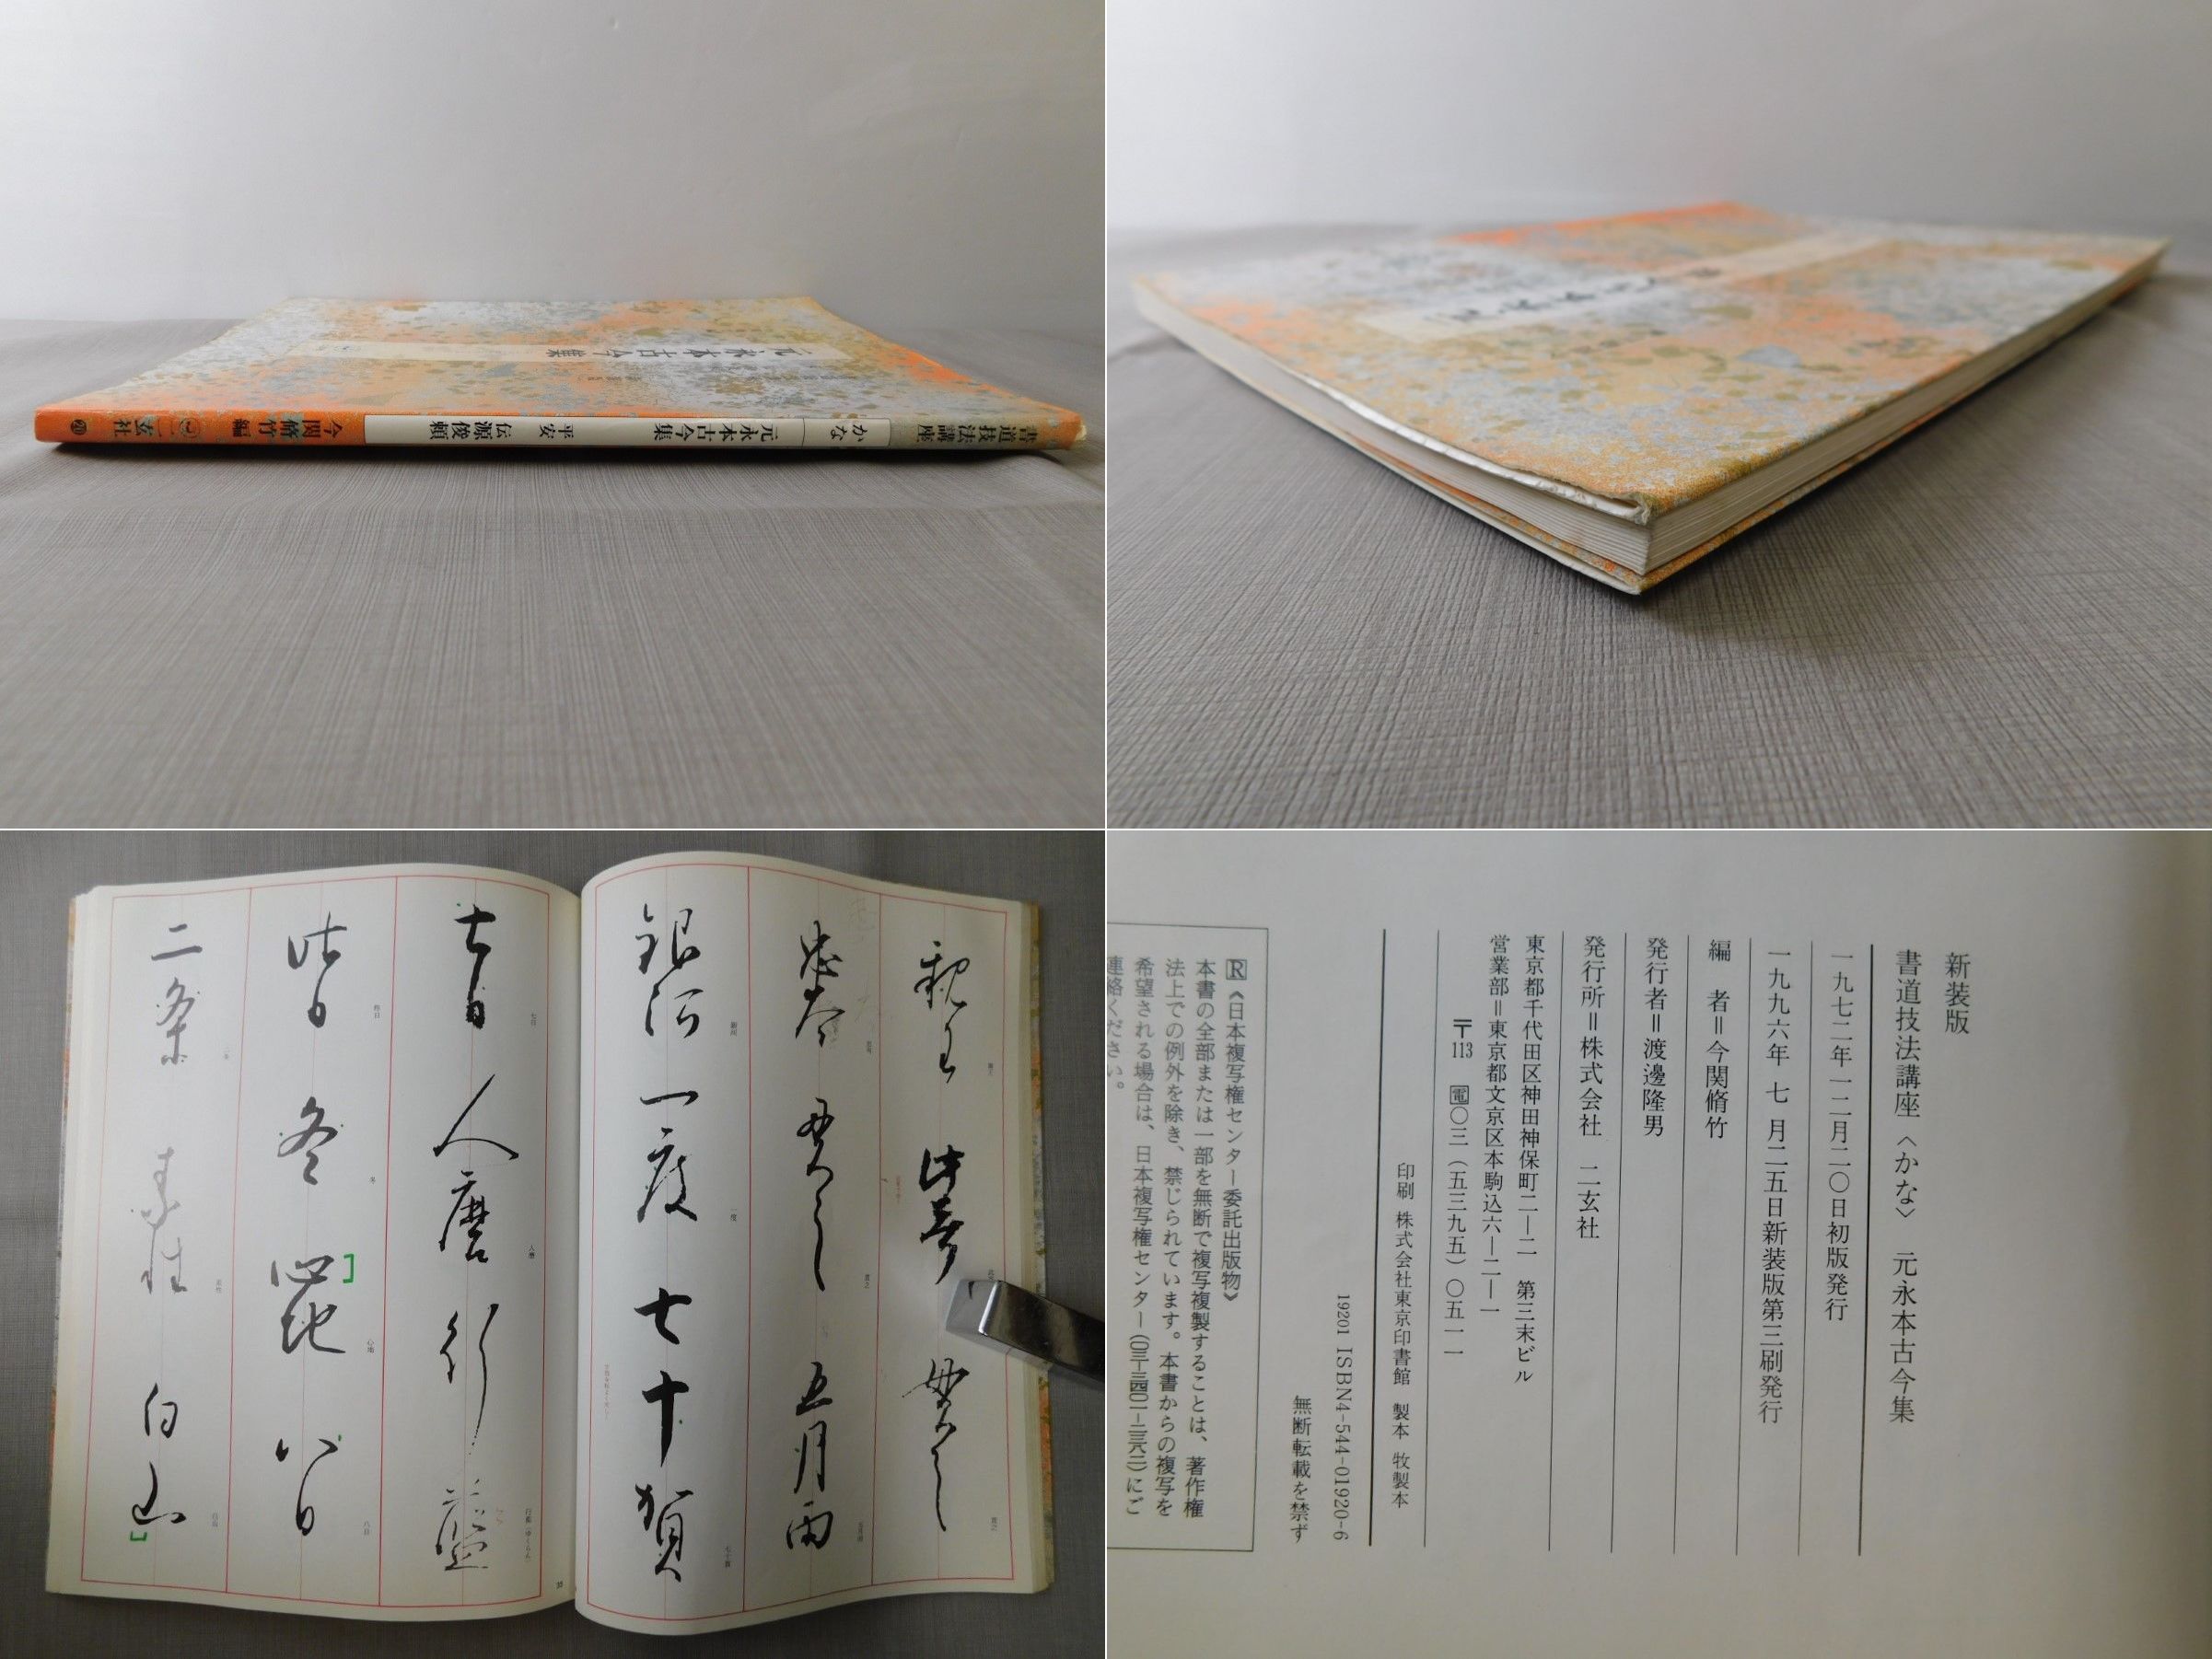 書道技法講座
かな
元永本古今集
平安 伝源俊頼
今関脩竹編
二玄社
20
元永本古今集
親王
忠岑 貫之 五月雨
銀河 一度 七十賀
七日 人麿 行 藍
昨日 冬 心地 八日
二条 素性 白山
新装版
書道技法講座〈かな〉 元永本古今集
一九七二年一二月二〇日初版発行
一九九六年 七 月二五日新装版第三刷発行
編 者＝今関脩竹
発行者＝渡邊隆男
発行所＝株式会社 二玄社
東京都千代田区神田神保町二ー二 第三末ビル
営業部＝東京都文京区本駒込六ー二ー一
〒113 電〇三（五三九五）〇五一一
印刷 株式会社東京印書館 製本 牧製本
19201 ISBN4-544-01920-6
無断転載を禁ず
R《日本複写権センター委託出版物》
本書の全部または一部を無断で複写複製することは、著作権
法上での例外を除き、禁じられています。本書からの複写を
希望される場合は、日本複写権センター（〇三ー三四〇一ー二三八二）にご
連絡ください。